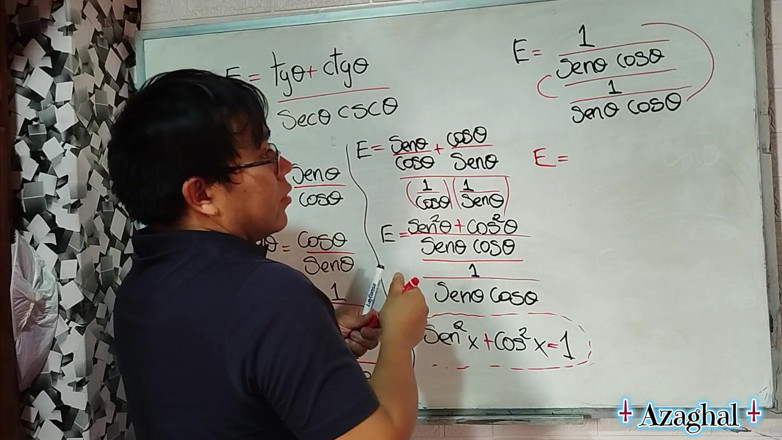 E = tgθ + ctgθ
secθ cscθ
Senθ
Cosθ
= Cosθ
Senθ
1
E = Senθ + Cosθ
Cosθ Senθ
(1)(1)
Cosθ Senθ
E = Sen²θ + Cos²θ
Senθ Cosθ
1
Senθ Cosθ
Sen²x + Cos²x = 1
E = 1
Senθ Cosθ
1
Senθ Cosθ
E =
Azaghal